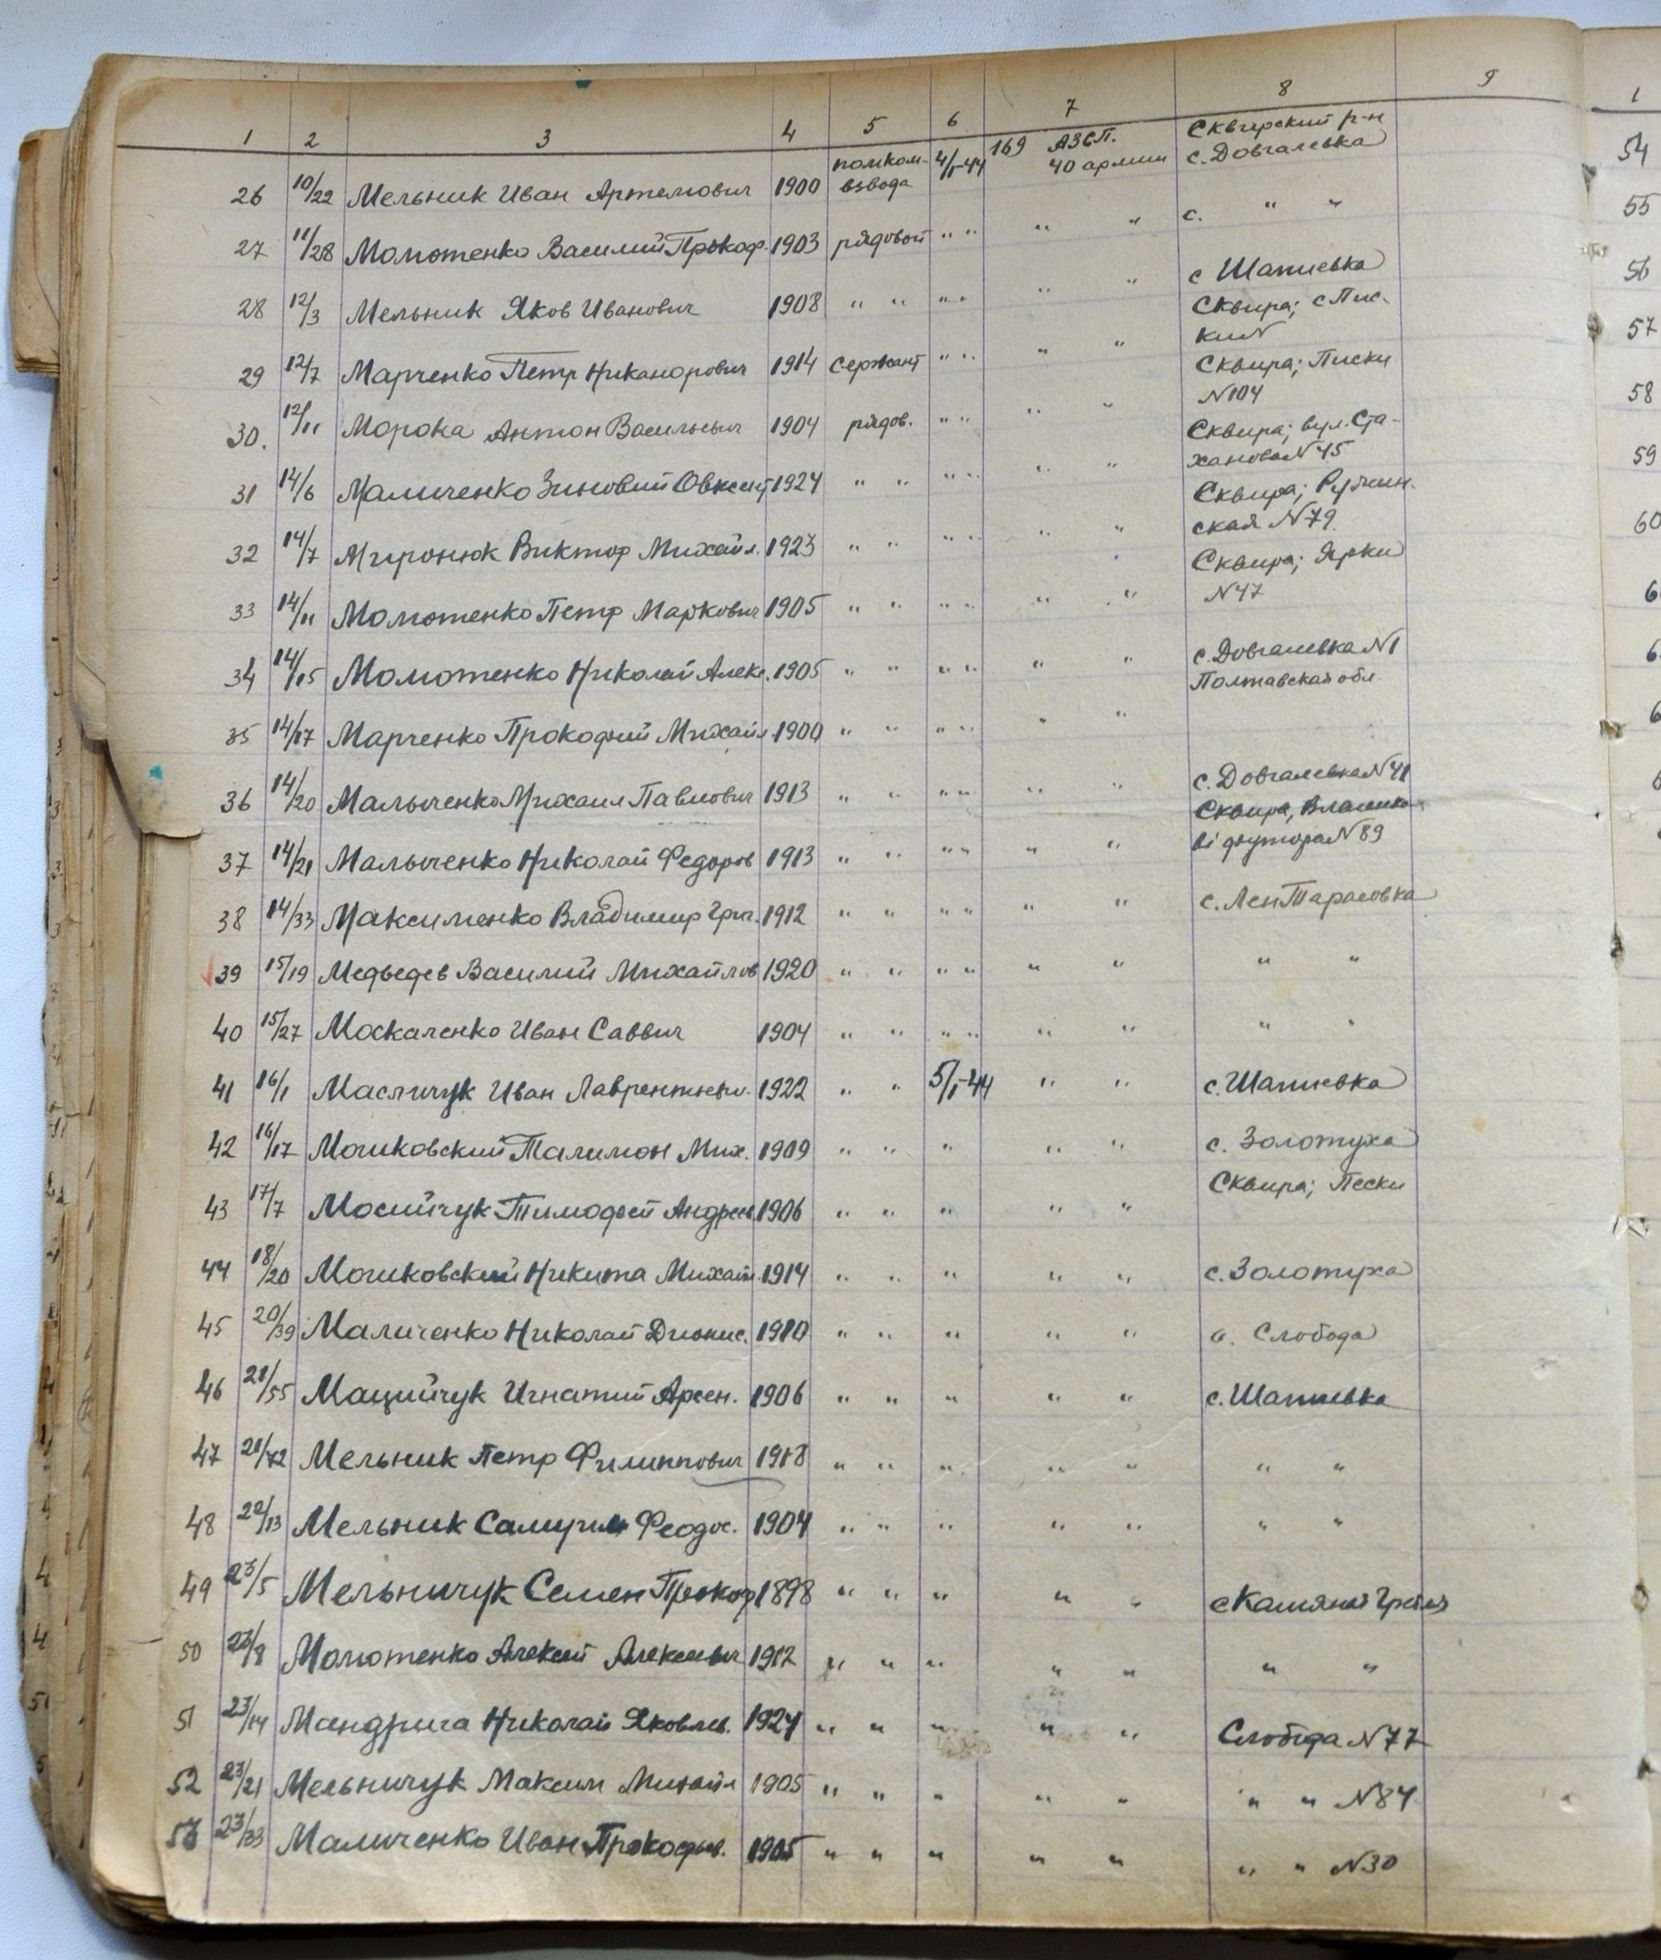 1 2 3 4 5 6 7 8 9
26 10/22 Мельник Иван Артемович 1900 помком- взвода 4/I-44 169 АЗСП. 40 армии Сквирский р-н с. Довгалевка
27 11/28 Момотенко Василий Прокоф. 1903 рядовой " " " " с. " "
28 12/3 Мельник Яков Иванович 1908 " " " " " " с Шапиевка
29 12/7 Марченко Петр Никанорович 1914 сержант " " " " Сквира; с Пис-
ки N
30. 12/11 Морока Антон Васильевич 1904 рядов. " " " " Сквира; Писки
N104
31 14/6 Маличенко Зиновий Овксент 1924 " " " " " " Сквира; вул. Ста-
ханова N45
32 14/7 Миронюк Виктор Михайл. 1923 " " " " " " Сквира; Румын.
ская N79.
33 14/11 Момотенко Петр Маркович 1905 " " " " " " Сквира; Ярки
N47
34 14/15 Момотенко Николай Алекс. 1905 " " " " " " с. Довгалевка N1
35 14/17 Марченко Прокофий Михайл. 1900 " " " " " " Полтавская обл.
36 14/20 Малыченко Михаил Павлович 1913 " " " " " " с. Довгалевка N41
37 14/21 Малыченко Николай Федоров 1913 " " " " " " Сквира,
хутора N89
38 14/33 Максименко Владимир Григ. 1912 " " " " " " с. ЛенТарасовка
39 15/19 Медведев Василий Михайлов 1920 " " " " " " " "
40 15/27 Москаленко Иван Саввич 1904 " " " " " " " "
41 16/1 Масличук Иван Лаврентьев. 1922 " " 5/I-44 " " с. Шапиевка
42 16/17 Мошковский Талимон Мих. 1909 " " " " " с. Золотуха
43 17/7 Мосийчук Тимофей Андреев. 1906 " " " " " Сквира; Пески
44 18/20 Мошковский Никита Михайл. 1914 " " " " " с. Золотуха
45 20/39 Маличенко Николай Дионис. 1910 " " " " " с. Слобода
46 21/55 Мацийчук Игнатий Арсен. 1906 " " " " " с. Шапиевка
47 21/72 Мельник Петр Филиппович 1918 " " " " " " "
48 22/13 Мельник Самуил Феодос. 1904 " " " " " " "
49 23/5 Мельничук Семен Прокоф 1898 " " " " " с Каменая Гребля
50 23/8 Момотенко Алексей Алексеевич 1912 " " " " " " "
51 23/14 Мандрига Николай Яковлев. 1924 " " " " " Слобода N77
52 23/21 Мельничук Максим Михайл 1905 " " " " " " " N84
53 23/33 Маличенко Иван Прокофьев. 1905 " " " " " " " N30
1
54
55
56
57
58
59
60